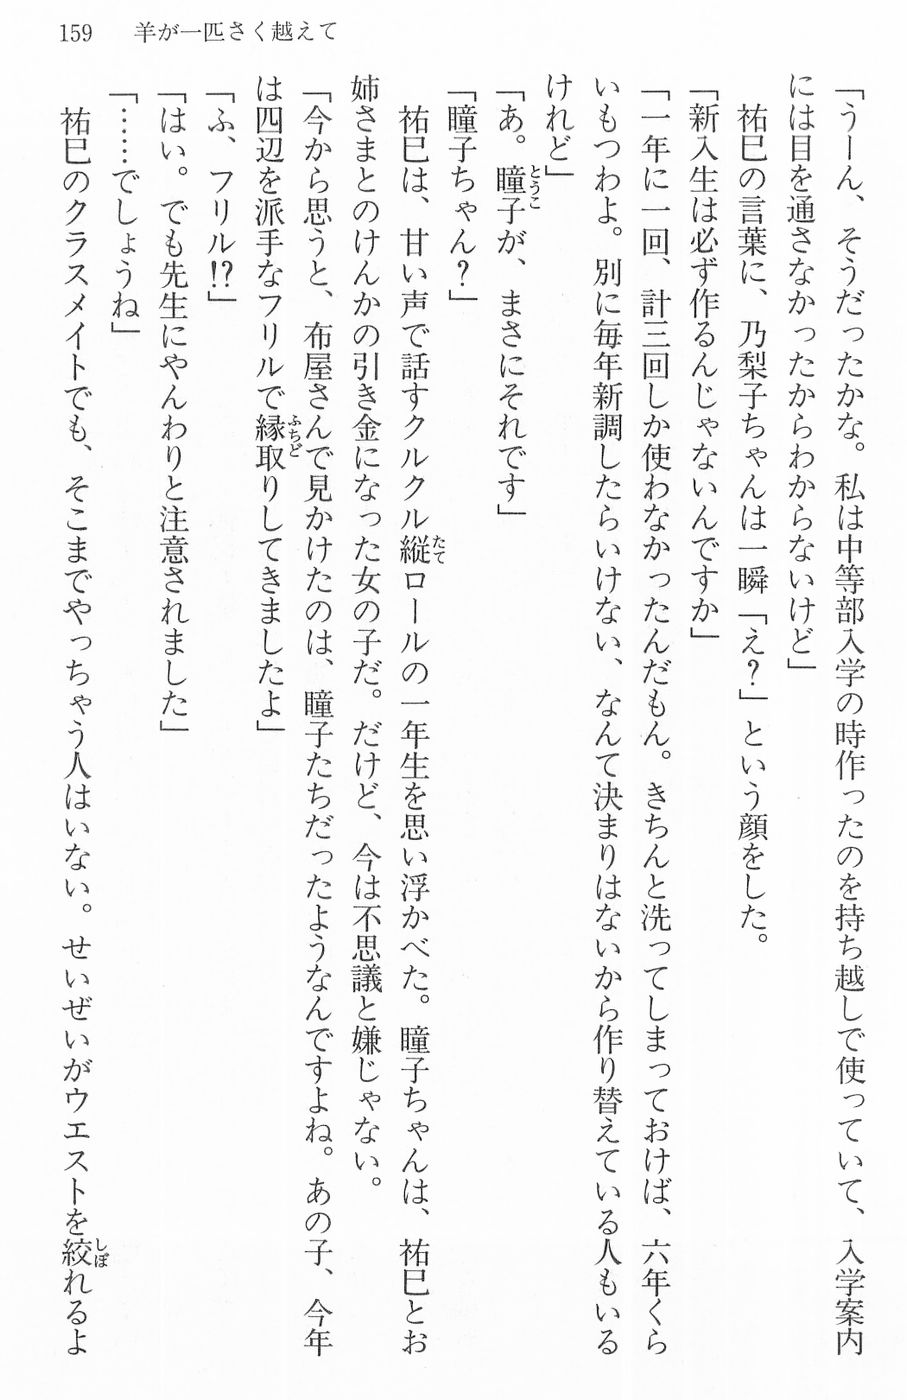 159　羊が一匹さく越えて
「うーん、そうだったかな。私は中等部入学の時作ったのを持ち越しで使っていて、入学案内
には目を通さなかったからわからないけど」
　祐巳の言葉に、乃梨子ちゃんは一瞬「え？」という顔をした。
「新入生は必ず作るんじゃないんですか」
「一年に一回、計三回しか使わなかったんだもん。きちんと洗ってしまっておけば、六年くら
いもつわよ。別に毎年新調したらいけない、なんて決まりはないから作り替えている人もいる
けれど」
「あ。瞳子が、まさにそれです」
「瞳子ちゃん？」
　祐巳は、甘い声で話すクルクル縦ロールの一年生を思い浮かべた。瞳子ちゃんは、祐巳とお
姉さまとのけんかの引き金になった女の子だ。だけど、今は不思議と嫌じゃない。
「今から思うと、布屋さんで見かけたのは、瞳子たちだったようなんですよね。あの子、今年
は四辺を派手なフリルで縁取りしてきましたよ」
「ふ、フリル!?」
「はい。でも先生にやんわりと注意されました」
「……でしょうね」
　祐巳のクラスメイトでも、そこまでやっちゃう人はいない。せいぜいがウエストを絞れるよ